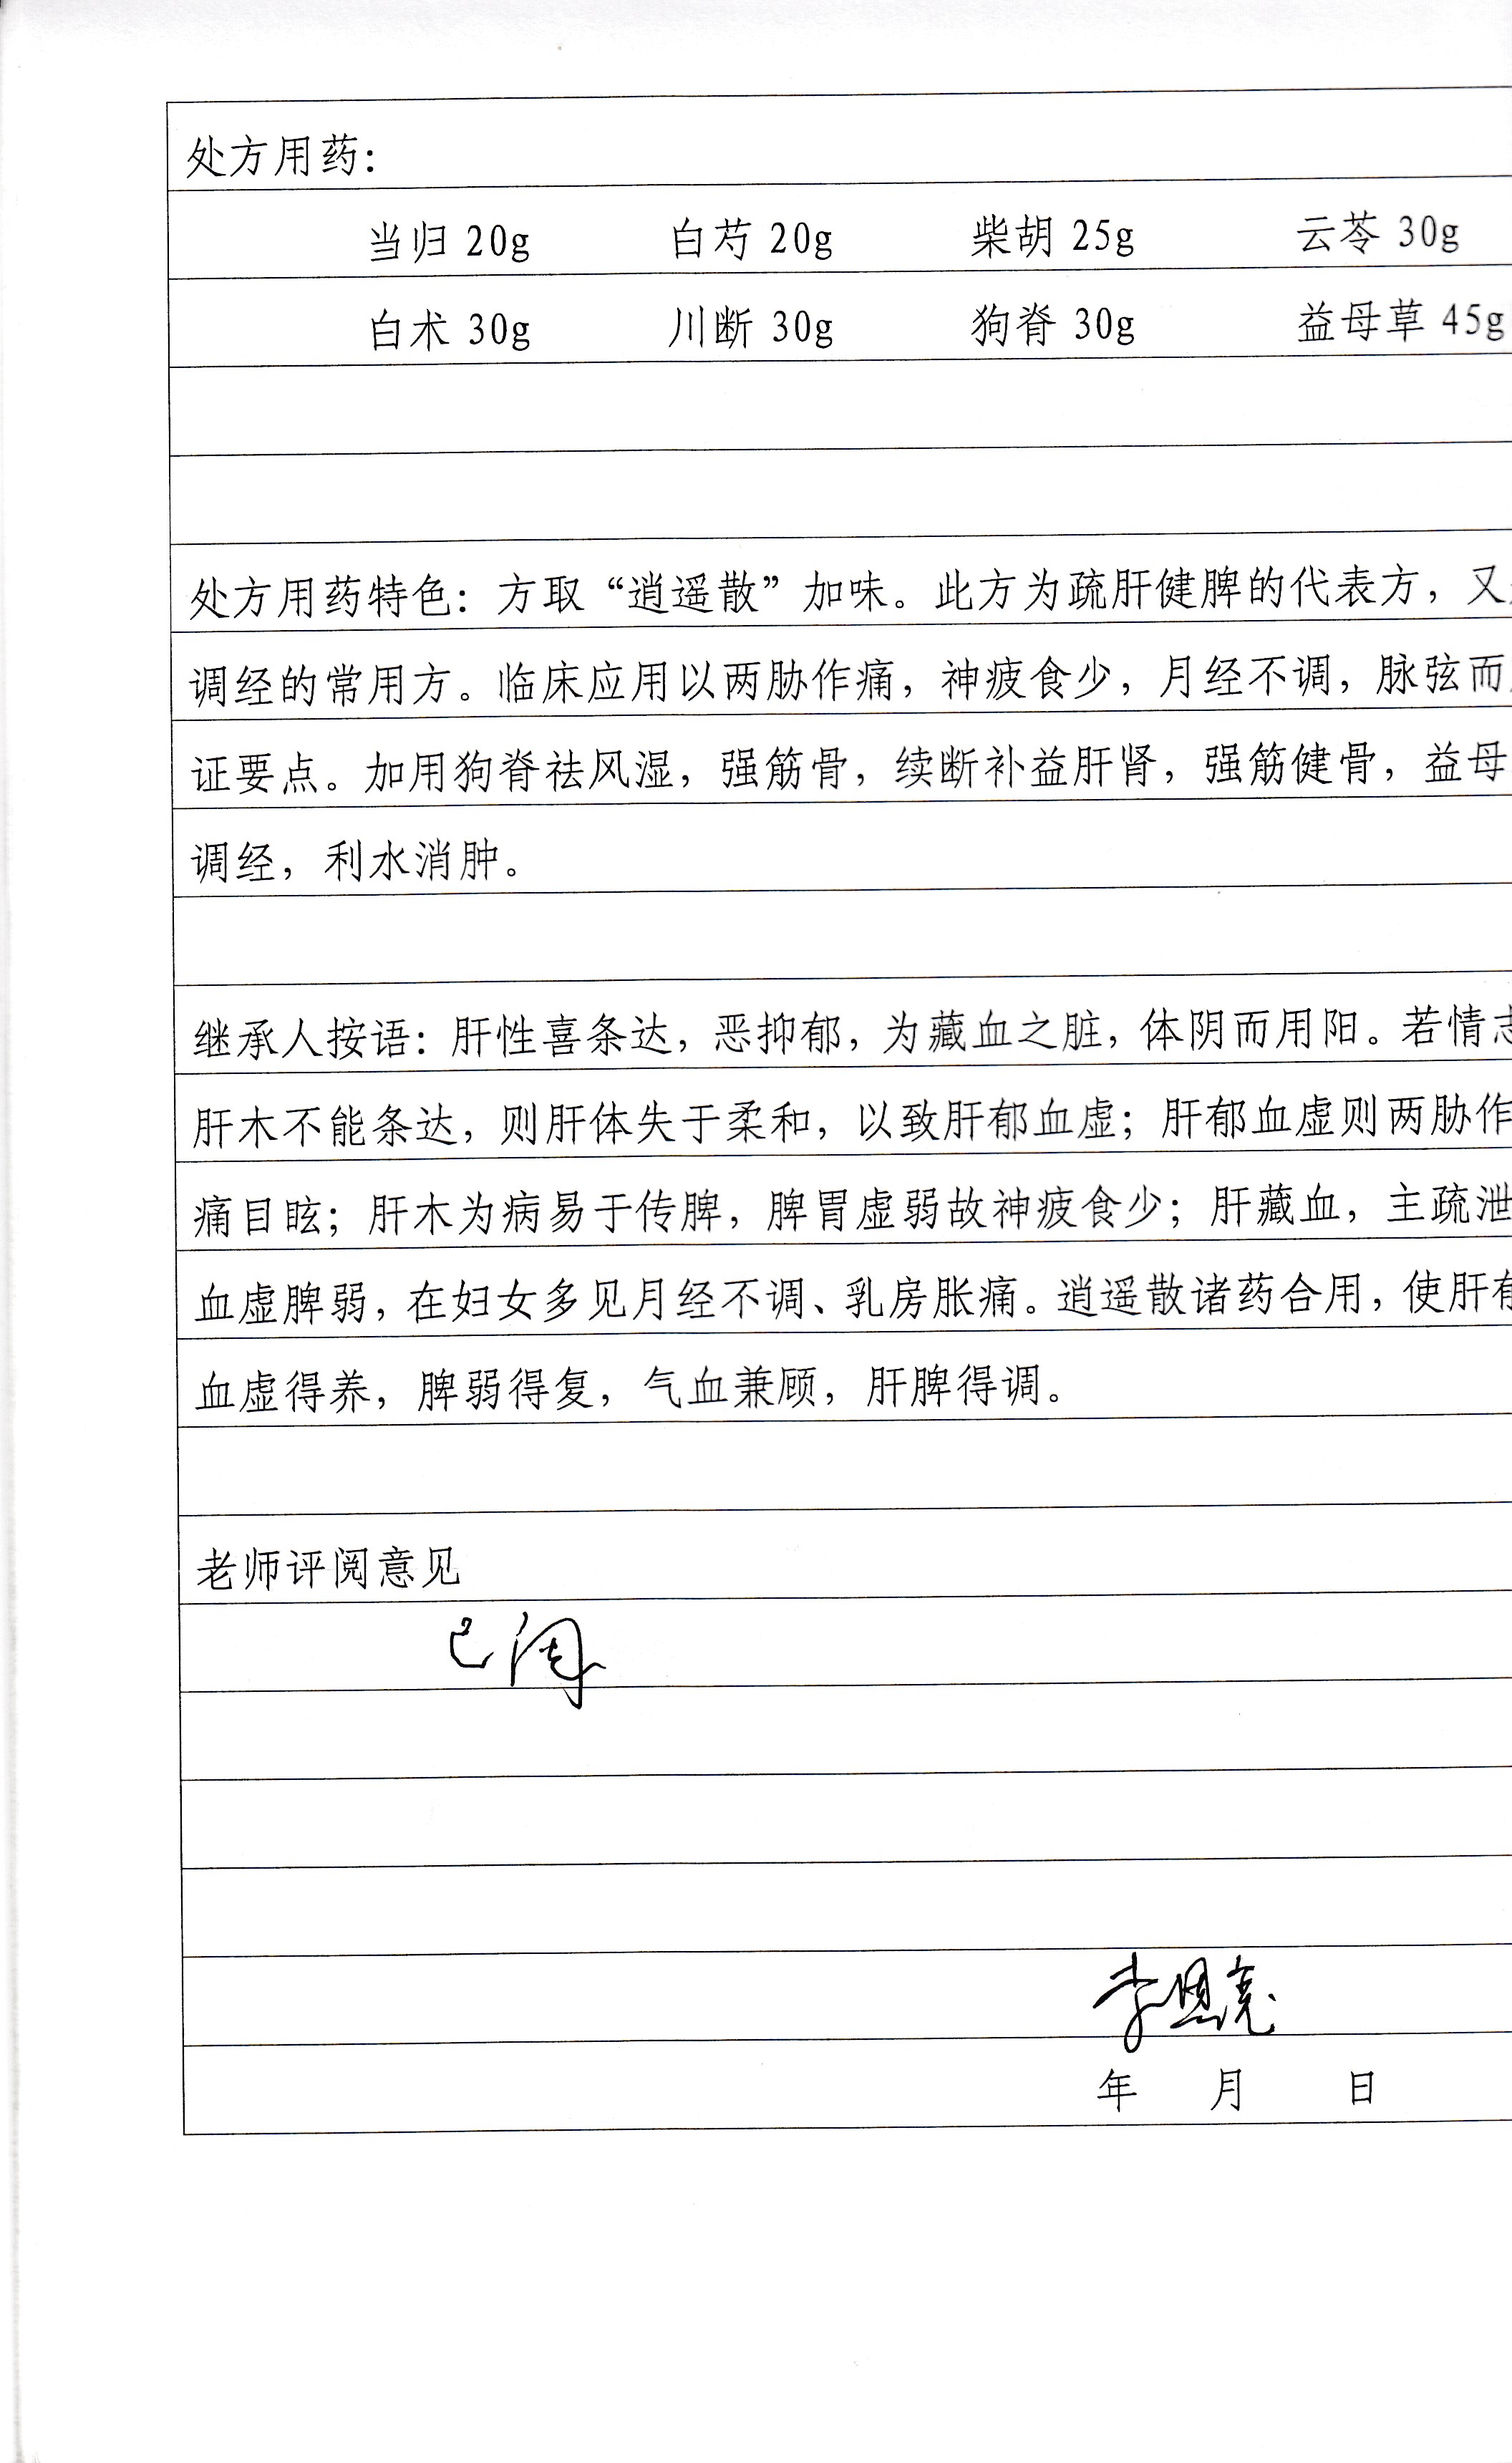 处方用药：
当归 20g 白芍 20g 柴胡 25g 云苓 30g
白术 30g 川断 30g 狗脊 30g 益母草 45g
处方用药特色：方取“逍遥散”加味。此方为疏肝健脾的代表方，又
调经的常用方。临床应用以两胁作痛，神疲食少，月经不调，脉弦而
证要点。加用狗脊祛风湿，强筋骨，续断补益肝肾，强筋健骨，益母
调经，利水消肿。
继承人按语：肝性喜条达，恶抑郁，为藏血之脏，体阴而用阳。若情志
肝木不能条达，则肝体失于柔和，以致肝郁血虚；肝郁血虚则两胁作
痛目眩；肝木为病易于传脾，脾胃虚弱故神疲食少；肝藏血，主疏泄
血虚脾弱，在妇女多见月经不调、乳房胀痛。逍遥散诸药合用，使肝郁
血虚得养，脾弱得复，气血兼顾，肝脾得调。
老师评阅意见
已阅
年 月 日